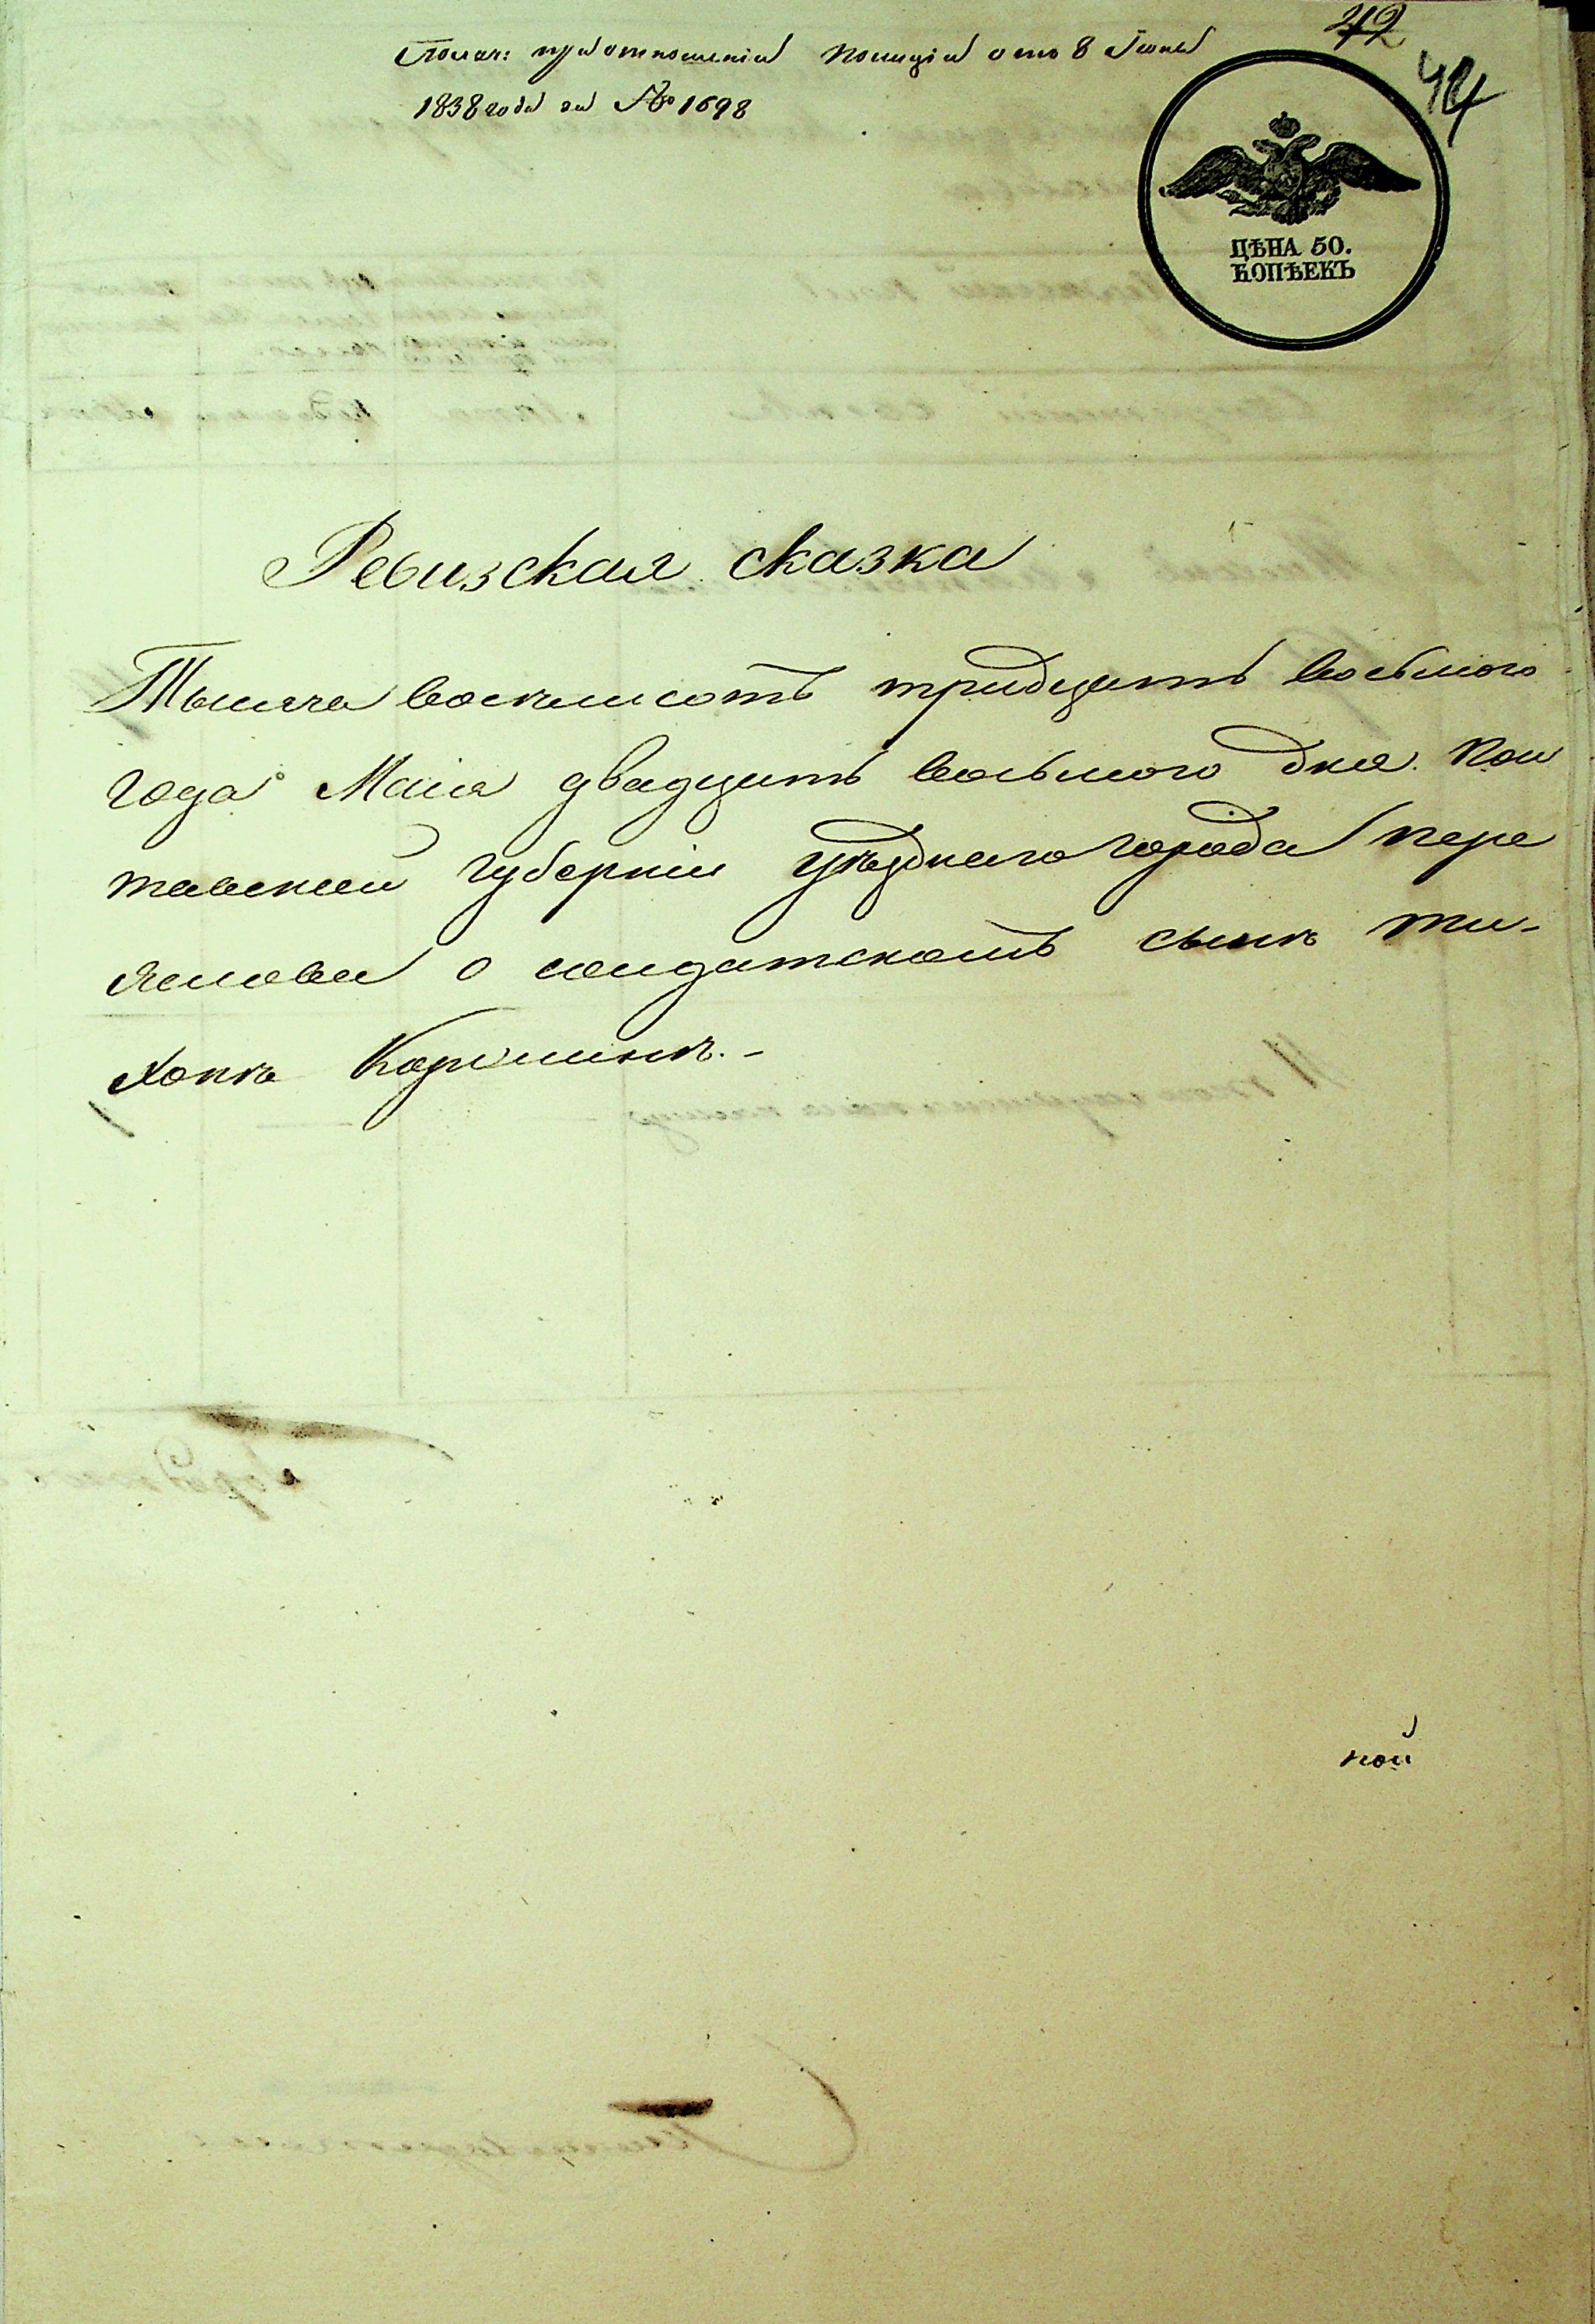 42
44
Получ: при отношеніи Полиціи отъ 8 Іюня
1838 года за № 1698
ЦѢНА 50.
КОПѢЕКЪ
Ревизская сказка
Тысяча восемьсотъ тридцать восьмого
года Маія двадцать восьмого дня. Пол
тавской губерніи уѣзднаго города Пере
яслова о солдатскомъ сынѣ Ти-
хонѣ
кой